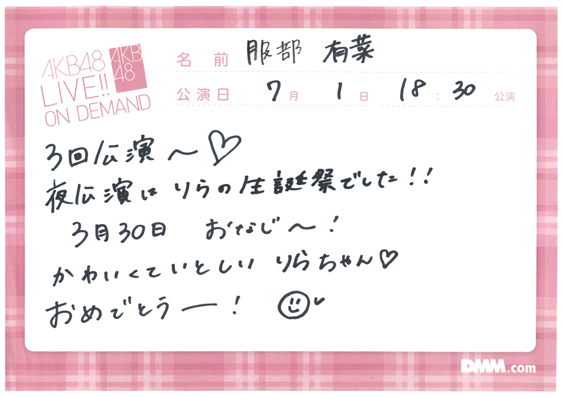 AKB48
LIVE!!
ON DEMAND
AKB
48
名前 服部 有菜
公演日 7月 1日 18:30公演
3回公演～♡
夜公演は りらの生誕祭でした!!
3月30日 おなじ～!
かわいくていとしい りらちゃん♡
おめでとうー!
DMM.com